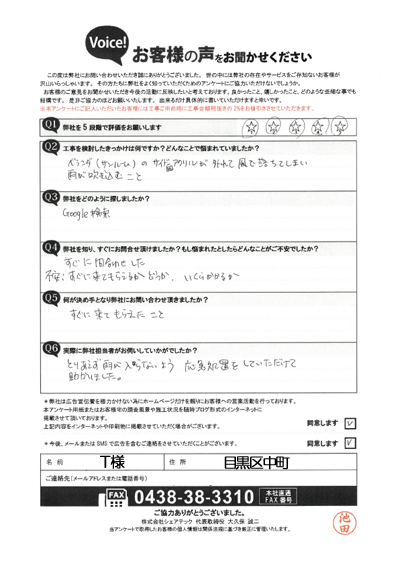 Voice!
お客様の声をお聞かせください
この度は弊社にお問い合わせいただき誠にありがとうございました。世の中には弊社の存在やサービスをご存知ないお客様が
沢山いらっしゃいます。その方たちに弊社をよく知っていただくためのアンケートにご協力いただけないでしょうか。
お客様のご意見をお聞かせいただき今後の活動に反映したいと考えております。良かったこと、嬉しかったこと、どのような些細な事でも
結構です。是非ご協力のほどお願いいたします。出来るだけ具体的に書いていただけますと幸いです。
Q1 弊社を5段階で評価をお願いします
Q2 工事を検討したきっかけは何ですか?どんなことで悩まれていましたか?
ベランダ(サンルーム)のサイドアクリルが外れて風で落ちてしまい
雨が吹き込むこと
Q3 弊社をどのように探しましたか?
Google検索
Q4 弊社を知り、すぐにお問合せ頂けましたか?もし悩まれたとしたらどんなことがご不安でしたか?
すぐに問合わせした
不安:すぐに来てもらえるかどうか、いくらかかるか
Q5 何が決め手となり弊社にお問い合わせ頂きましたか?
すぐに来てもらえたこと
Q6 実際に弊社担当者がお伺いしていかがでしたか?
とりあえず雨が入らないよう応急処置をしていただけて
助かりました。
*弊社は広告宣伝費を極力かけない為にホームページだけを頼りにお客様への営業活動を行っております。
本アンケート用紙またはお客様宅の調査風景や施工状況を随時ブログ形式のインターネットに
掲載させて頂いております。
上記内容をインターネットや印刷物に掲載させていただく場合がございます。 同意します
*今後、メールまたはSMSで広告を含むご連絡をさせていただくことがございます。 同意します
名前 T様 住所 目黒区中町
ご連絡先(メールアドレスまたは電話番号)
FAX 0438-38-3310 本社直通 FAX番号
ご協力ありがとうございました。
株式会社シェアテック 代表取締役 大久保 誠二
当アンケートで取得したお客様の個人情報は関係法規に基づき厳正に管理いたします。
池田